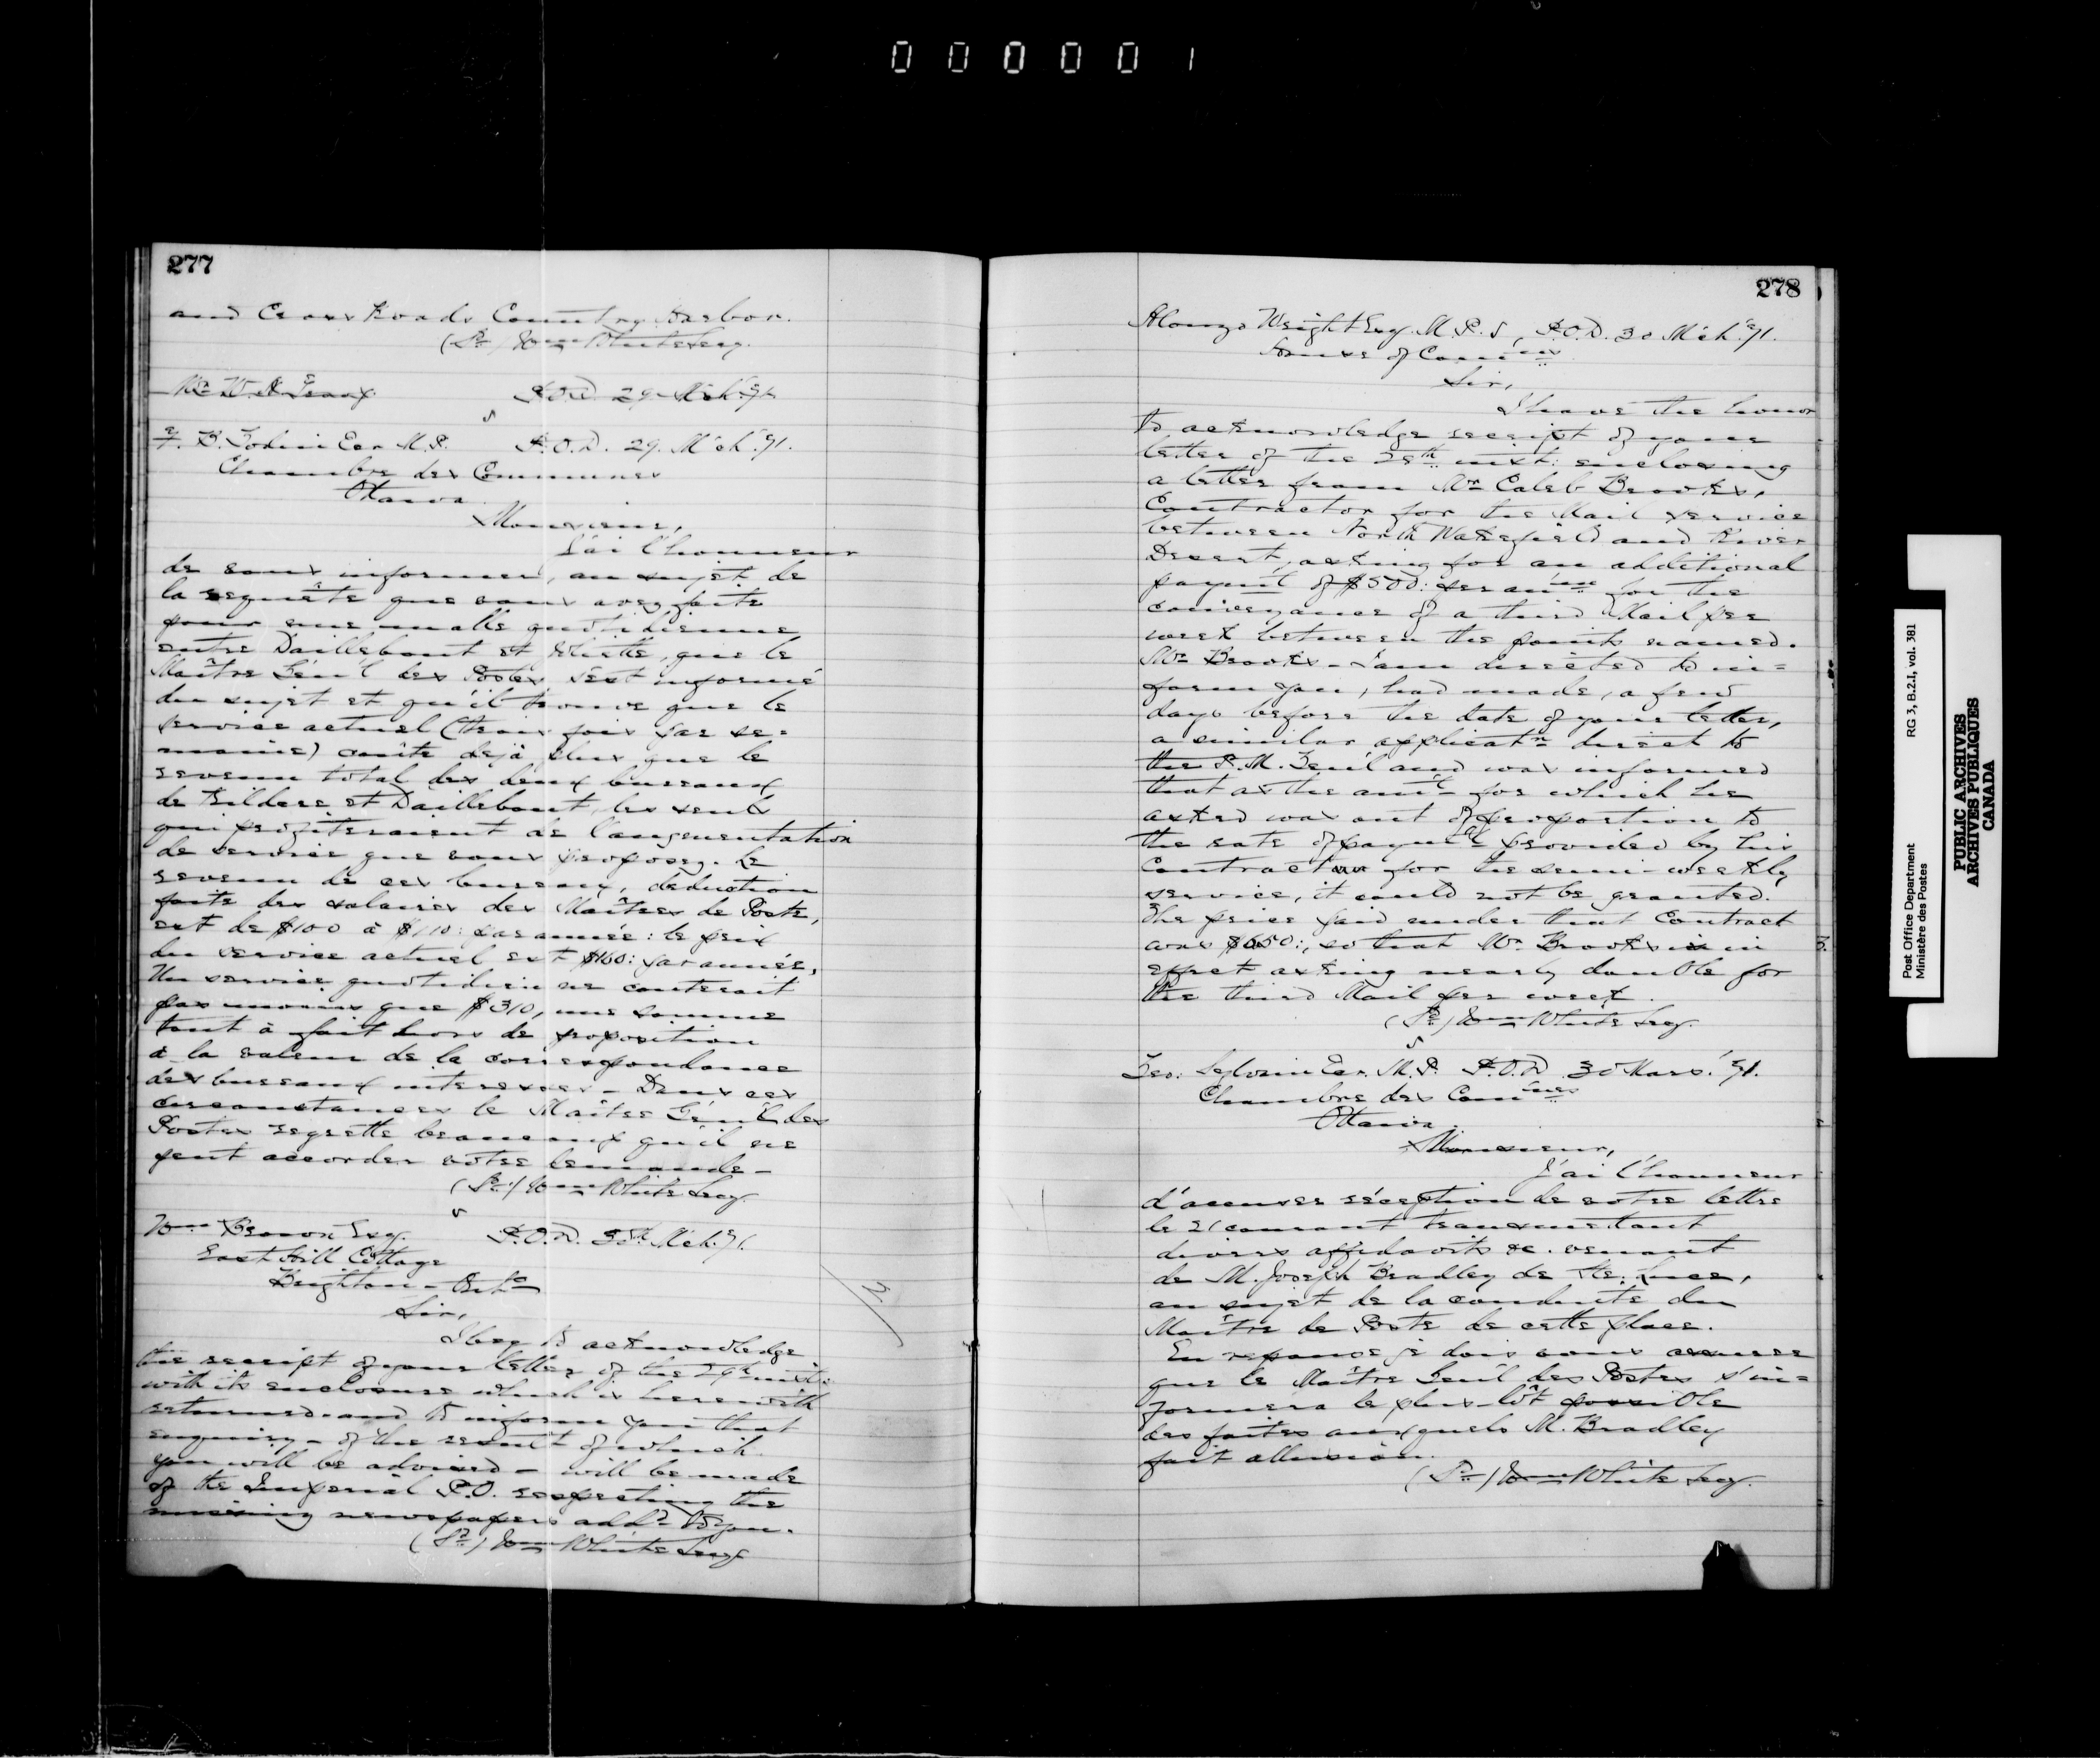 000001
277
and Cross Roads Country Harbor.
(Sd) Wm White Secy.
Mr W. H. P.O.D. 29 Mch '71
F. B. Godin Ecr M.P. P.O.D. 29. Mch '71.
Chambre des Communes
Ottawa
Monsieur,
J'ai l'honneur
de vous informer, au sujet de
la requête que vous avez faite
pour une malle quotidienne
entre Daillebout et Joliette, que le
Maître Gén'l des Postes s'est informé
du sujet et qu'il trouve que le
service actuel (trois fois par se=
maine) coûte dejà plus que le
revenu total des deux bureaux
de Kildare et Daillebout, les seuls
qui profiteraient de l'augmentation
de service que vous proposez. Le
revenu de ces bureaux, deduction
faite des salaires des Maîtres de Poste,
est de $100 à $110: par année: le prix
du service actuel est $160: par année,
Un service quotidien ne couterait
pas moins que $310, une somme
tout à fait hors de proposition
à la valeur de la correspondance
des bureaux interessés - Dans ces
circonstances le Maître Gén'l des
Postes regrette beaucoup qu'il ne
peut accorder votre demande -
(Sd) Wm White Secy.
Wm Brown Esq. P.O.D. 30th Mch. '71.
East Hill Cottage
Brighton - Onto
Sir,
I beg to acknowledge
the receipt of your letter of the 29th inst:
with its enclosure which is herewith
returned. and to inform you that
enquiry - of the result of which
you will be advised - will be made
of the Imperial P.O. respecting the
missing newspapers addd to you.
(Sd) Wm White Secy
278
Alonzo Wright Esq. M.P. P.O.D. 30 Mch '71.
House of Commns
Sir,
I have the honor
to acknowledge receipt of your
letter of the 28th inst: enclosing
a letter from Mr Caleb Brooks,
Contractor for the Mail service
between North Wakefield and River
Desert, asking for an additional
paymt of $500: per annm for the
conveyance of a third Mail per
week between the points named.
Mr Brooks - I am directed to in=
form you, had made, a few
days before the date of your letter,
a similar applicatn direct to
the P.M. Gen'l and was informed
that as the amt for which he
asked was out of proportion to
the rate of paymt provided by his
Contract for the semi-weekly
service, it could not be granted.
The price paid under that Contract
was $650:, so that Mr Brooks is in
effect asking nearly double for
the third Mail per week.
(Sd) Wm White Secy.
Geo: Sylvain Ecr. M.P. P.O.D. 30 Mars. '71.
Chambre des Commnes
Ottawa
Monsieur,
J'ai l'honneur
d'accuser réception de votre lettre
le 21 courant transmettant
divers affidavits &c. venant
de M. Joseph Bradley de Ste. Luce,
au sujet de la conduite du
Maître de Poste de cette place.
En reponse je dois vous assurer
que le Maître Gen'l des Postes s'in=
formera le plus-tôt possible
des faites auxquels M. Bradley
fait allusion.
(Sd) Wm White Secy.
Post Office Department RG 3, B.2.I, vol. 381
Ministère des Postes
PUBLIC ARCHIVES
ARCHIVES PUBLIQUES
CANADA